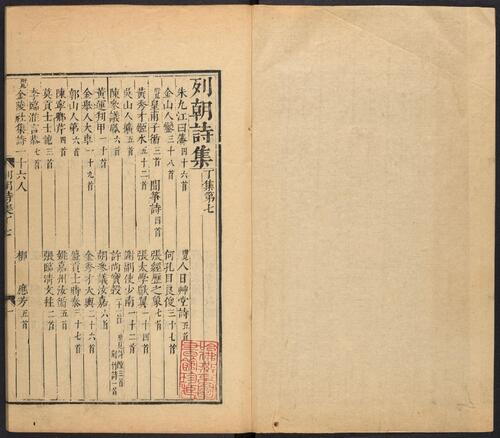 列朝詩集丁集第七
朱九江曰藩四十六首
金山人鑾三十八首
附見皇甫子循三首 聞箏詩四首
黃秀才姬水五十二首
吳山人擴五首
陳參議鳳六首
黃運判甲一十首
金舉人大車一十九首
郭山人第六首
陳寧鄉芹四首
莫貢士士龍三首
李臨淮言恭七首
附見金陵社集詩一十六人
覽人日艸堂詩五首
何孔目良俊三十七首
張經歷之象七首
張太學獻翼一十四首
謝副使少南一十二首
許尚寶穀二十一首
胡參議汝嘉六首
金秀才大輿二十六首
盛貢士時泰三十七首
姚嘉州汝循五首
張臨清文柱二首
柳應芳五首
列朝詩集丁七
一